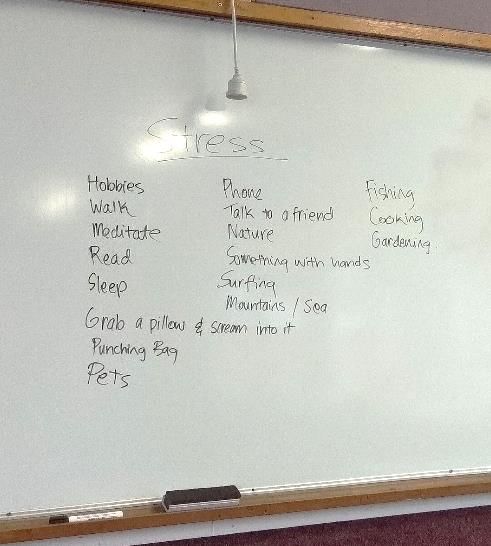 Stress
Hobbies
Walk
Meditate
Read
Sleep
Grab a pillow & scream into it
Punching Bag
Pets
Phone
Talk to a friend
Nature
Something with hands
Surfing
Mountains / Sea
Fishing
Cooking
Gardening